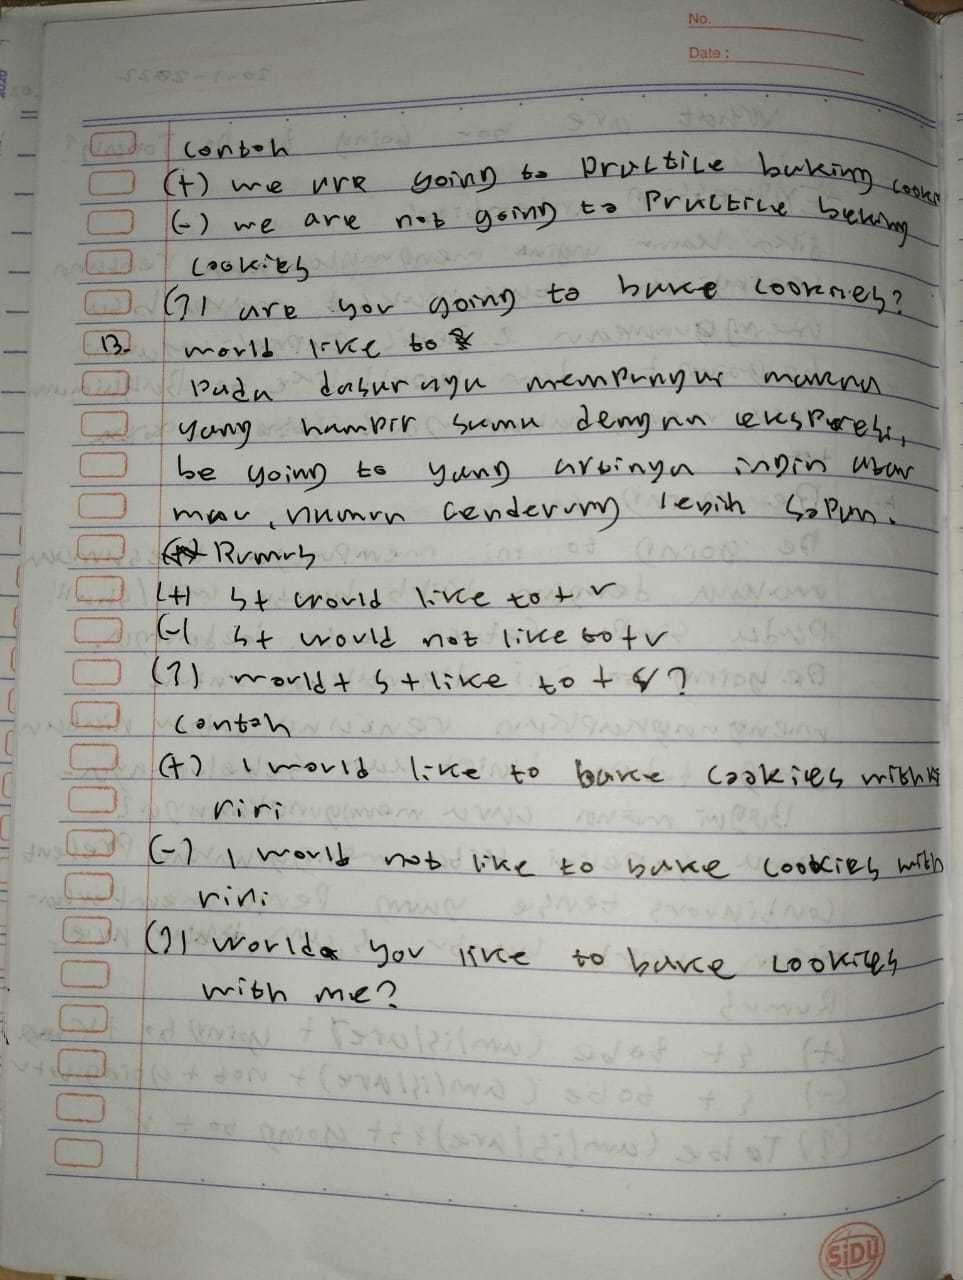 No.
Date :
Contoh
(+) we are going to practice baking cooki
(-) we are not going to practice baking
cookies
(?) are you going to bake cookies?
B. would like to
pada dasar nya mempunyai makna
yang hampir sama dengan ekspresi,
be going to yang artinya ingin atau
mau, namun cenderung lebih sopan.
Rumus
(+) S + would like to + v
(-) S + would not like to + v
(?) would + S + like to + v?
contoh
(+) I would like to bake cookies with
riri
(-) I would not like to bake cookies with
riri
(?) would you like to bake cookies
with me?
SiDU